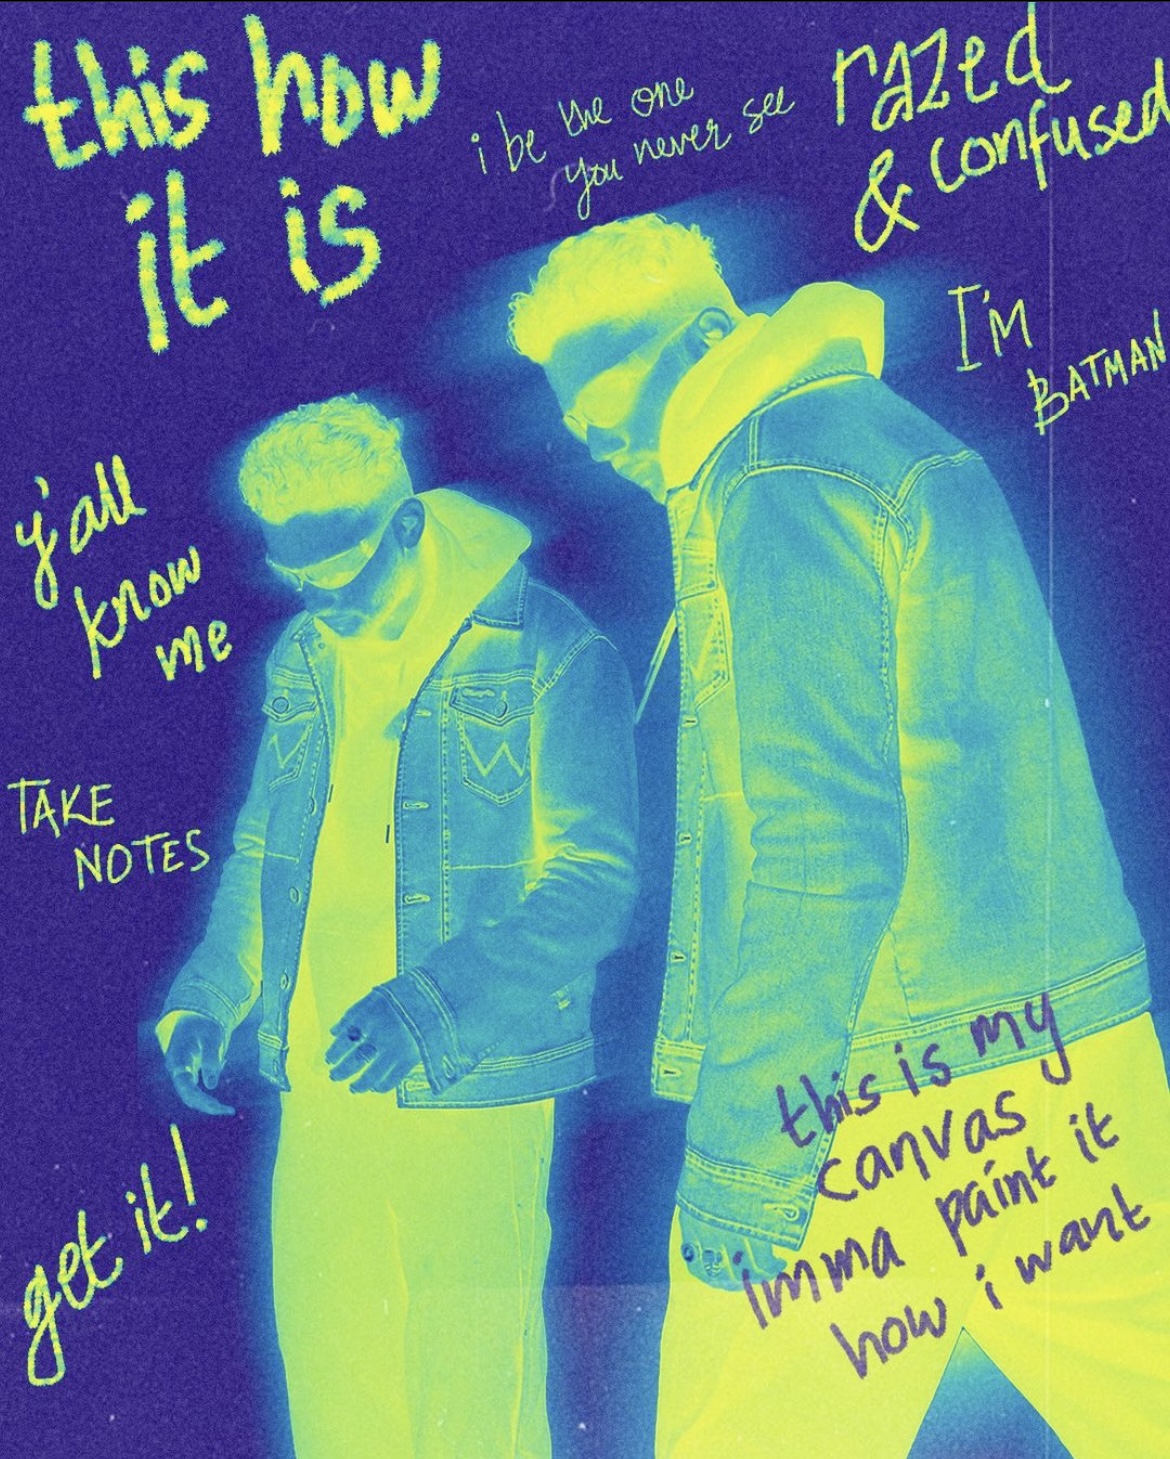 this how
it is
i be the one
you never see
razed
& confused
I'm
BATMAN
y'all
know
me
TAKE
NOTES
get it!
this is my
canvas
imma paint it
how i want